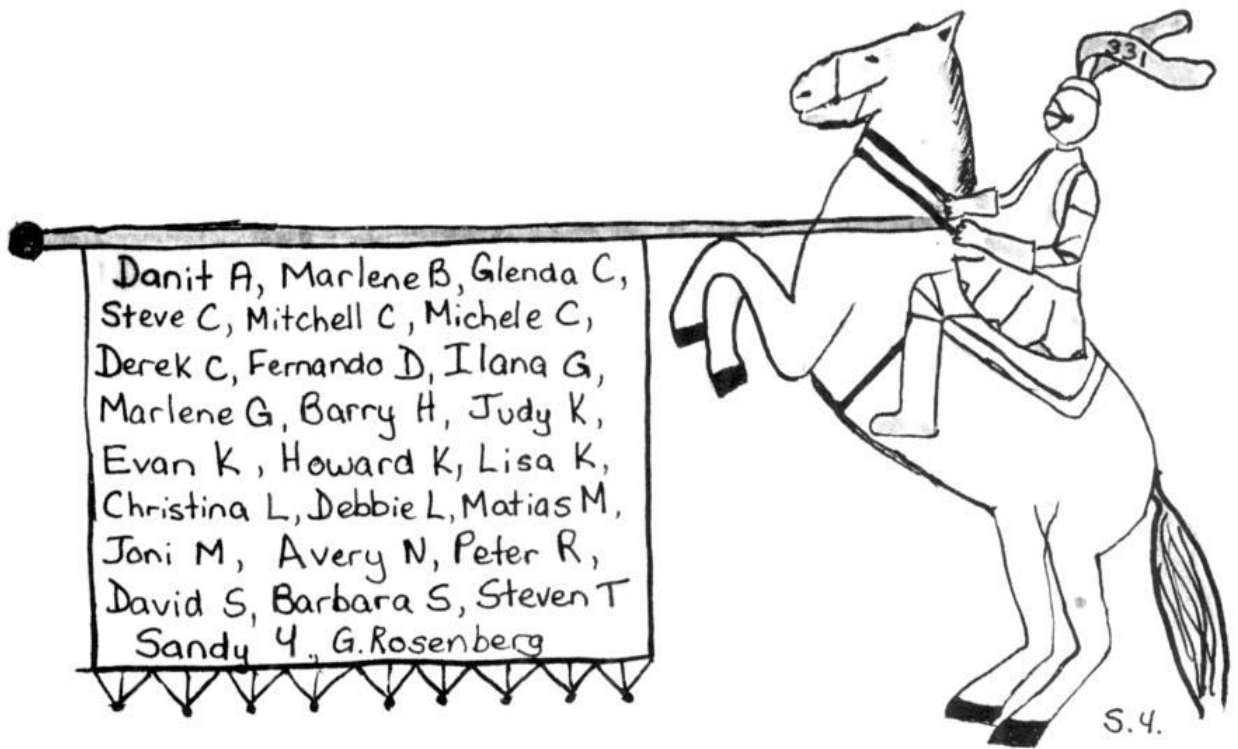 331
Danit A, Marlene B, Glenda C,
Steve C, Mitchell C, Michele C,
Derek C, Fernando D, Ilana G,
Marlene G, Barry H, Judy K,
Evan K, Howard K, Lisa K,
Christina L, Debbie L, Matias M,
Joni M, Avery N, Peter R,
David S, Barbara S, Steven T
Sandy Y., G. Rosenberg
S.Y.